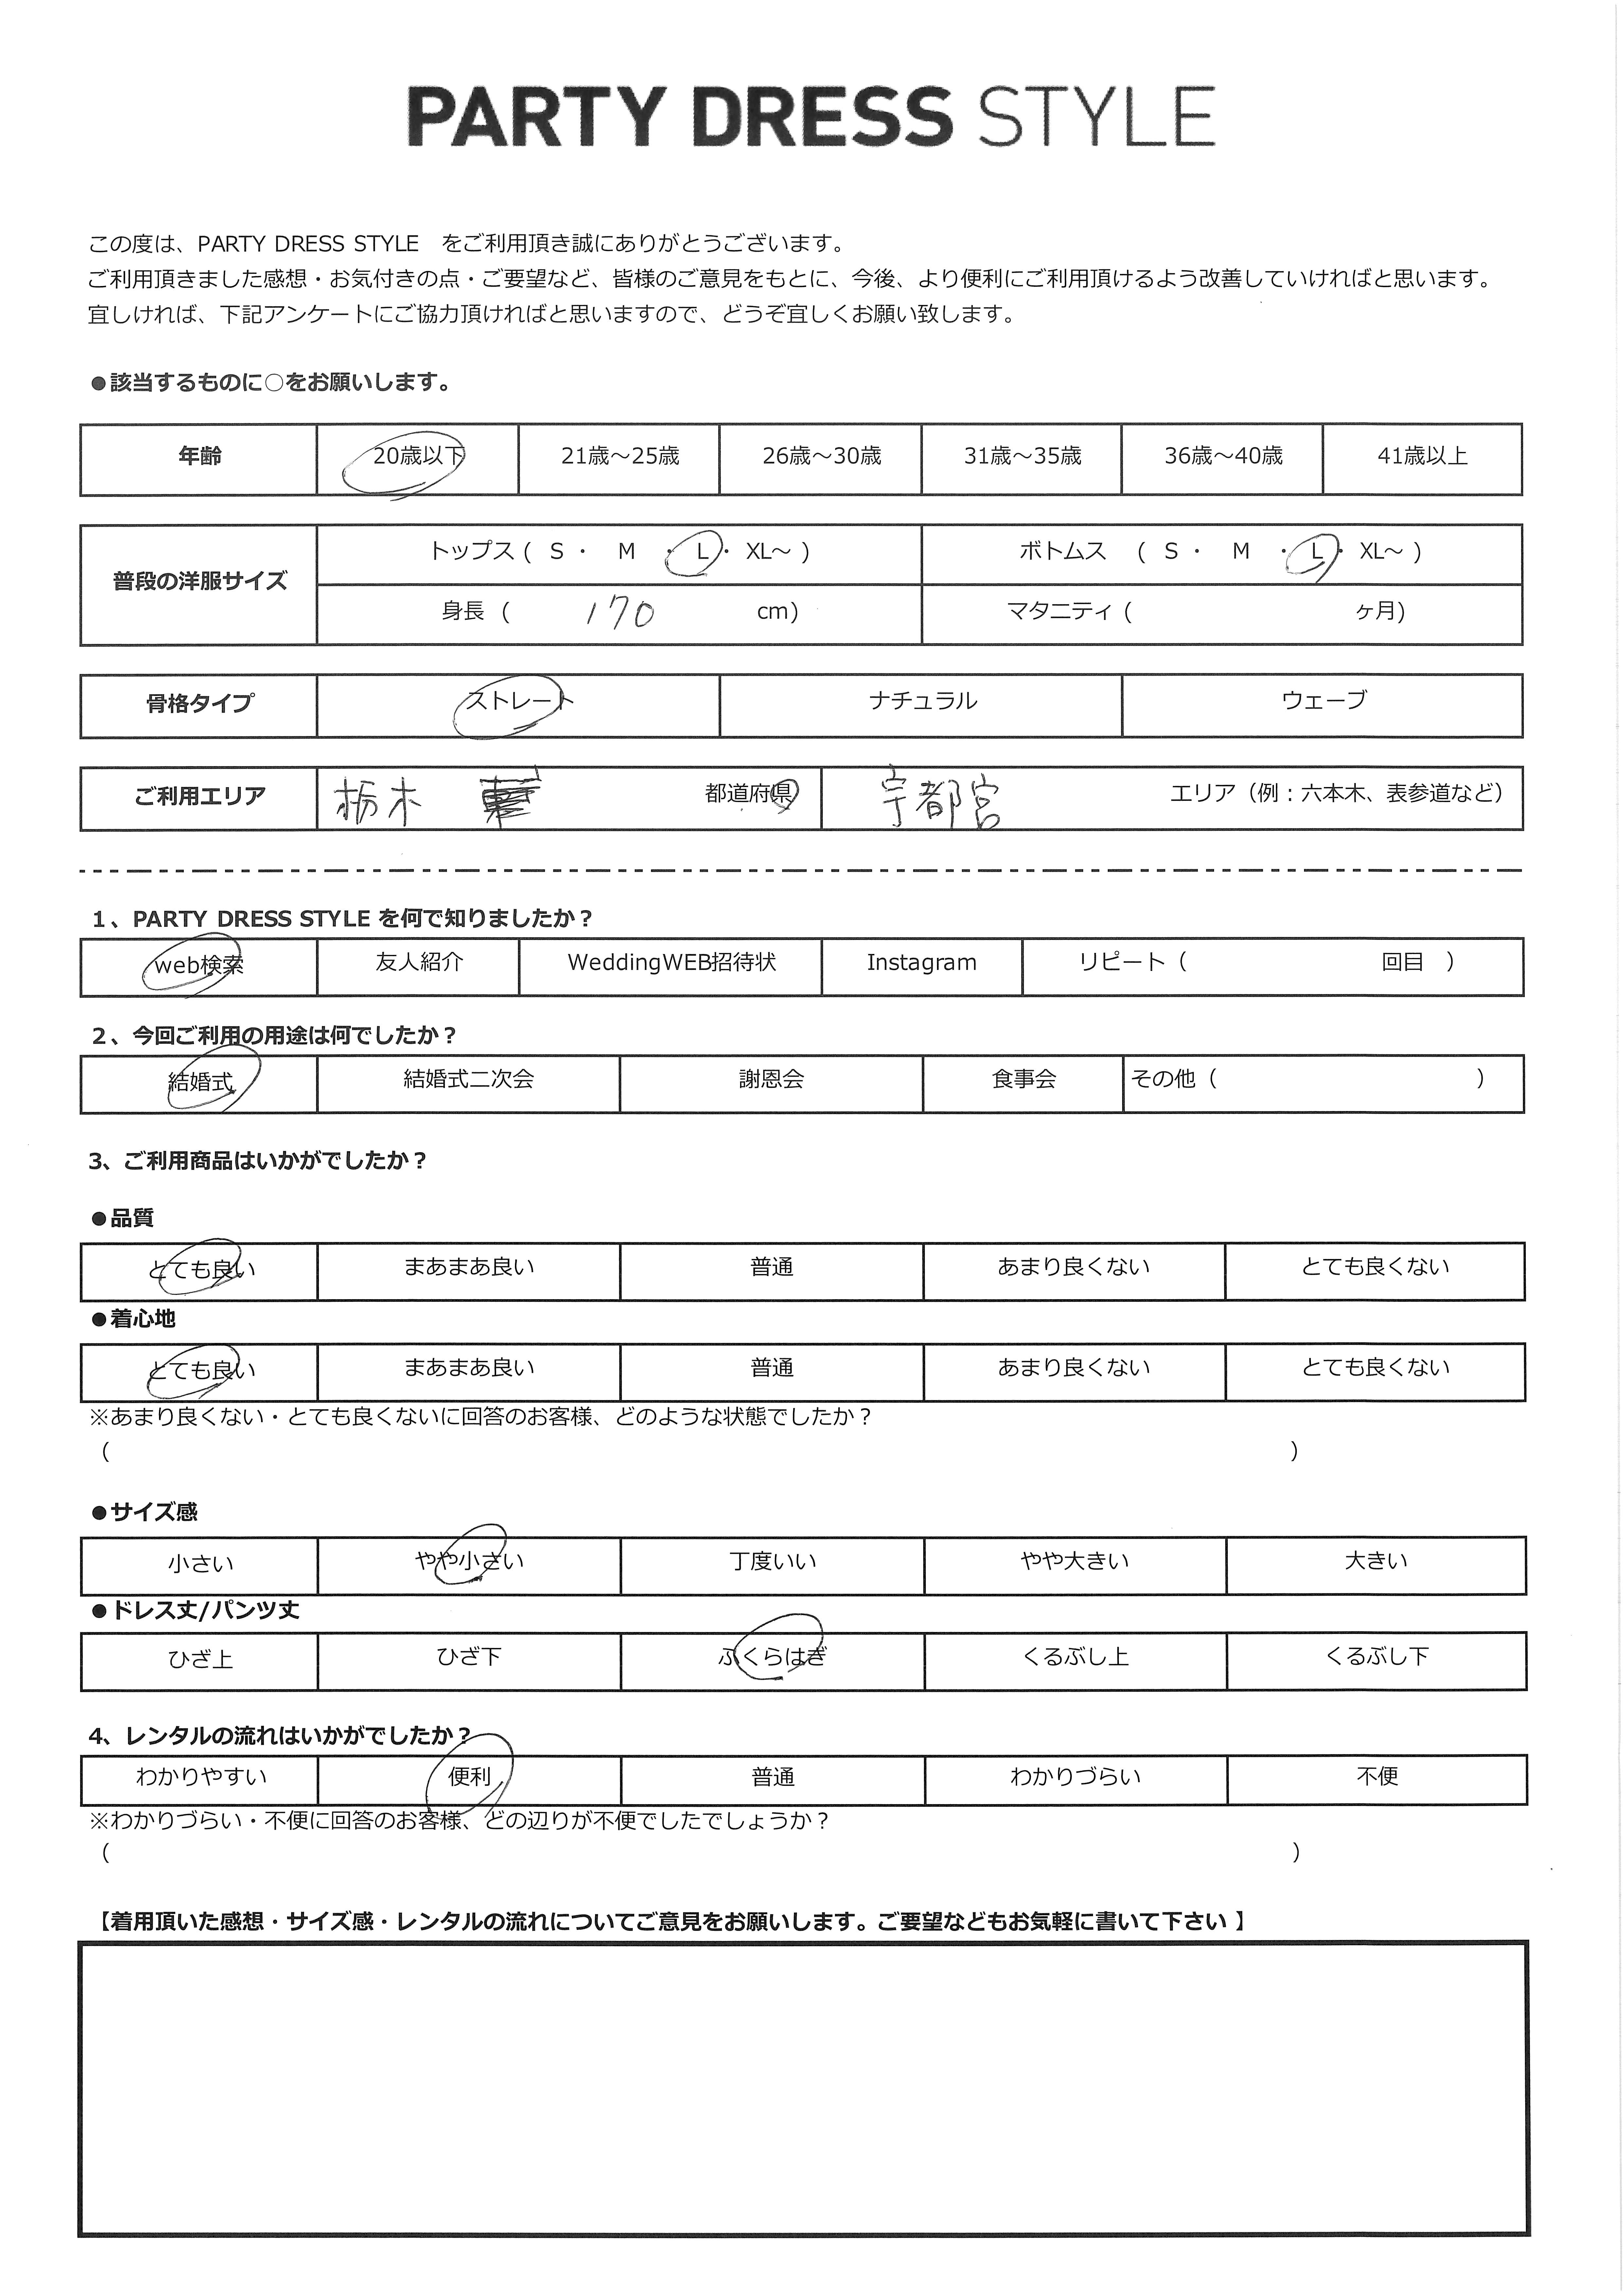 PARTY DRESS STYLE
この度は、PARTY DRESS STYLE　をご利用頂き誠にありがとうございます。
ご利用頂きました感想・お気付きの点・ご要望など、皆様のご意見をもとに、今後、より便利にご利用頂けるよう改善していければと思います。
宜しければ、下記アンケートにご協力頂ければと思いますので、どうぞ宜しくお願い致します。
●該当するものに○をお願いします。
年齢 20歳以下 21歳～25歳 26歳～30歳 31歳～35歳 36歳～40歳 41歳以上
普段の洋服サイズ
トップス ( S ・ M ・ L ・ XL～ ) ボトムス ( S ・ M ・ L ・ XL～ )
身長 ( 170 cm) マタニティ ( ヶ月)
骨格タイプ ストレート ナチュラル ウェーブ
ご利用エリア 栃木 都道府県 宇都宮 エリア（例：六本木、表参道など）
1、PARTY DRESS STYLE を何で知りましたか？
web検索 友人紹介 WeddingWEB招待状 Instagram リピート（ 回目 ）
2、今回ご利用の用途は何でしたか？
結婚式 結婚式二次会 謝恩会 食事会 その他（ ）
3、ご利用商品はいかがでしたか？
●品質
とても良い まあまあ良い 普通 あまり良くない とても良くない
●着心地
とても良い まあまあ良い 普通 あまり良くない とても良くない
※あまり良くない・とても良くないに回答のお客様、どのような状態でしたか？
（ ）
●サイズ感
小さい やや小さい 丁度いい やや大きい 大きい
●ドレス丈/パンツ丈
ひざ上 ひざ下 ふくらはぎ くるぶし上 くるぶし下
4、レンタルの流れはいかがでしたか？
わかりやすい 便利 普通 わかりづらい 不便
※わかりづらい・不便に回答のお客様、どの辺りが不便でしたでしょうか？
（ ）
【着用頂いた感想・サイズ感・レンタルの流れについてご意見をお願いします。ご要望などもお気軽に書いて下さい 】